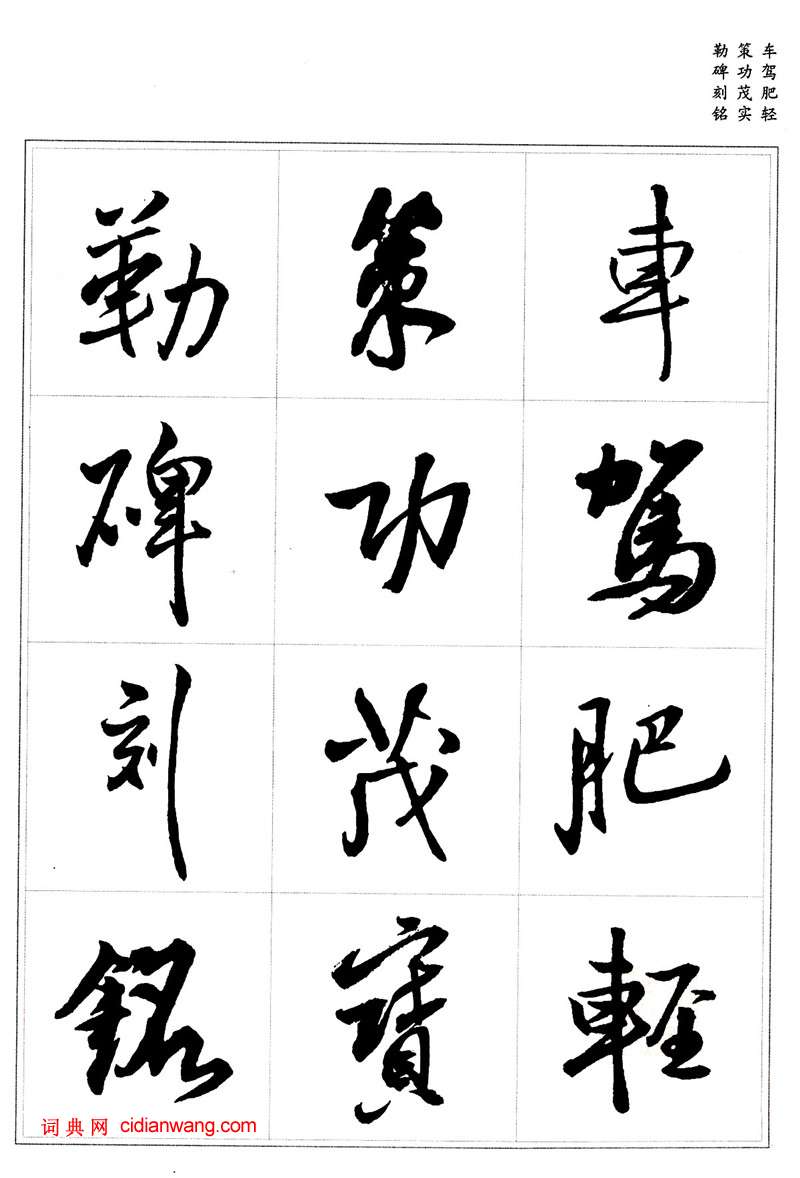 车驾肥轻
策功茂实
勒碑刻铭
車駕肥輕
策功茂實
勒碑刻銘
词典网 cidianwang.com